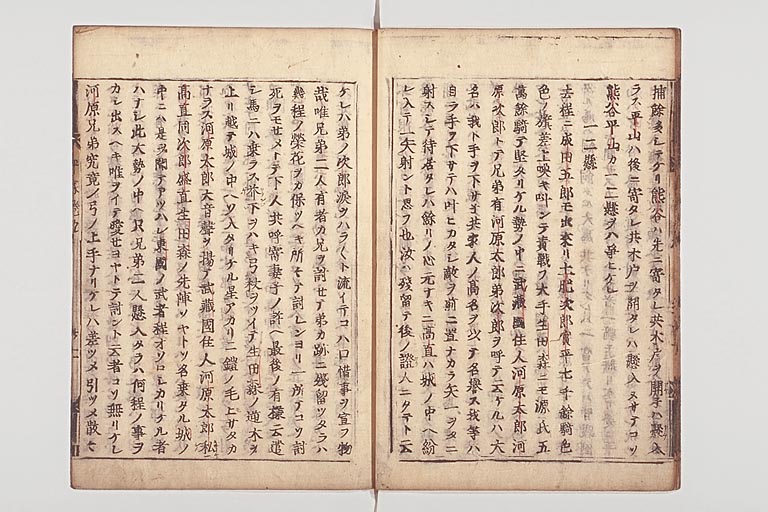 捕餘多シテケリ熊谷ハ先ニ寄タレ共木戸ヲ開子ハ懸入
ラス平山ハ後ニ寄タレ共木戸ツ開タレハ懸入ヌサテコソ
熊谷平山カ一二懸ヲハ爭ヒケレ
一二懸
去程ニ成田五郎モ出来リ土肥次郎實平七千餘騎色
色ノ旗差上喚キ叫ンテ責戰フ大手生田森ニモ源氏五
萬餘騎テ堅タリケル勢ノ中ニ武藏國住人河原太郎河
原次郎トテ兄弟有河原太郎弟次郎ヲ呼テ云ケルハ大
名ハ我ト手ヲ下サ子共家人ノ高名ヲ以テ名譽ス我等ハ
自ラ手ヲ下サテハ叶ヒカタシ敵ヲ前ニ置ナカラ矢一ヲタニ
射スシテ待居タレハ餘リノ心元ナキニ高直ハ城ノ中ヘ紛
レ入テ一矢射ント思フ也汝ハ殘留テ後ノ證人ニタテト云
ケレハ弟ノ次郎涙ヲハラハラト流イテコハ口惜事ヲ宣フ物
哉唯兄弟二人有者カ兄ヲ討セテ弟カ跡ニ殘留ツタラハ
幾程ノ榮花ヲカ保ツヘキ所々テ討レンヨリ一所テコソ討
死ヲモセメトテ下人共呼寄妻子ノ許ヘ最後ノ有樣云遣
シ馬ニハ乘ラス下ヲハキ弓杖ヲツイテ生田森ノ逆木ヲ
上リ越テ城ノ中ヘソ入タリケル星アカリニ鎧ノ毛上サタカ
ナラス河原太郎大音聲ヲ揚テ武藏國住人河原太郎私
高直同次郎盛直生田森ノ先陣ソヤトソ名乘タル城ノ
中ニハ是ヲ聞テアツハレ東國ノ武者程オソロシカリケル者
ハナシ此大勢ノ中ヘ只兄弟二人懸入タラハ何程ノ事ヲ
カシ出スヘキ唯ヲイテ愛セヨヤトテ討ント云者コソ無リケレ
河原兄弟究竟ノ弓ノ上手ナリケレハ差ツメ引ツメ散々